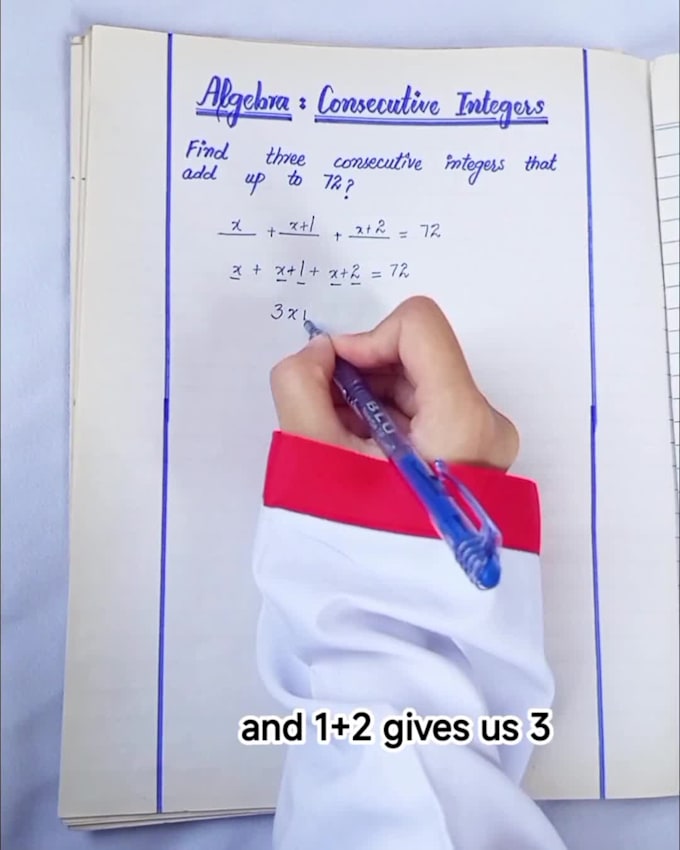 Algebra : Consecutive Integers
Find three consecutive integers that
add up to 72?
x + x+1 + x+2 = 72
x + x+1 + x+2 = 72
3x
BLU
and 1+2 gives us 3